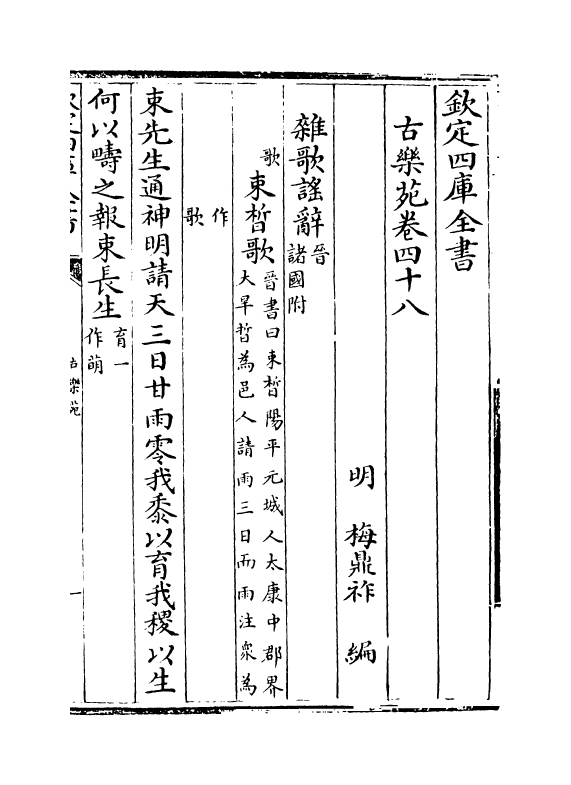 欽定四庫全書
古樂苑卷四十八
明　梅鼎祚　編
雜歌謠辭晉諸國附
歌
束晳歌晉書曰束晳陽平元城人太康中郡界
大旱晳為邑人請雨三日而雨注衆為
作
歌
束先生通神明請天三日甘雨零我黍以育我稷以生
何以疇之報束長生育一作萌
古樂苑
一